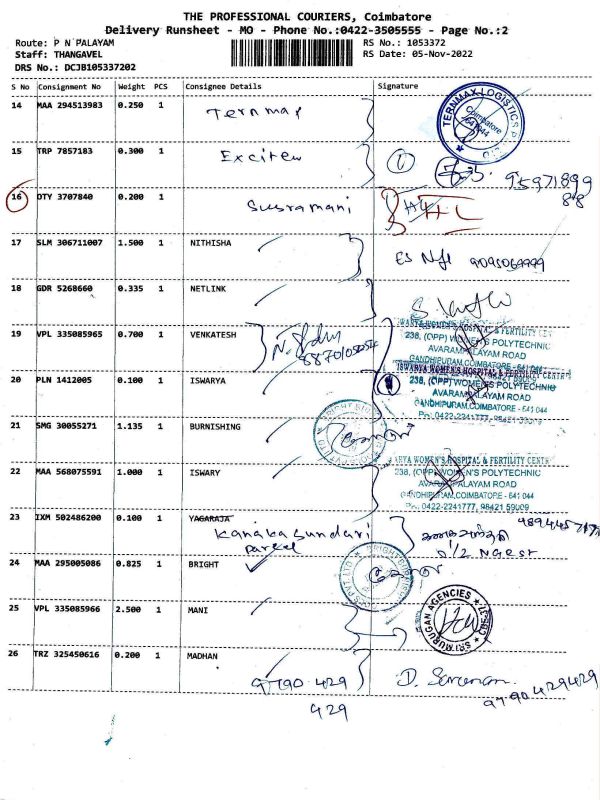 THE PROFESSIONAL COURIERS, Coimbatore
Delivery Runsheet - MO - Phone No.:0422-3505555 - Page No.:2
Route: P N PALAYAM
RS No.: 1053372
Staff: THANGAVEL
RS Date: 05-Nov-2022
DRS No.: DCJB105337202
S No Consignment No Weight PCS Consignee Details Signature
14 MAA 294513983 0.250 1 Ternmax
TERNMAX LOGISTICS
Coimbatore
641044
15 TRP 7857183 0.300 1
95971899
88
16 DTY 3707840 0.200 1 Susramani
17 SLM 306711007 1.500 1 NITHISHA
18 GDR 5268660 0.335 1 NETLINK
19 VPL 335085965 0.700 1 VENKATESH
238, (OPP) WOMEN'S POLYTECHNIC
AVARAMPALAYAM ROAD
GANDHIPURAM, COIMBATORE - 641 044
20 PLN 1412005 0.100 1 ISWARYA
ISWARYA WOMEN'S HOSPITAL & FERTILITY CENTRE
238, (OPP) WOMEN'S POLYTECHNIC
AVARAMPALAYAM ROAD
GANDHIPURAM, COIMBATORE - 641 044
21 SMG 30055271 1.135 1 BURNISHING
22 MAA 568075591 1.000 1 ISWARY
ARYA WOMEN'S HOSPITAL & FERTILITY CENTR
238, (OPP) WOMEN'S POLYTECHNIC
AVARAMPALAYAM ROAD
GANDHIPURAM, COIMBATORE - 641 044
Ph: 0422-2241777, 98421 59009
23 IXM 502486200 0.100 1 YAGARAJA
Kanakasundari
24 MAA 295005086 0.825 1 BRIGHT
25 VPL 335085966 2.500 1 MANI
SRI MURUGAN AGENCIES
26 TRZ 325450616 0.200 1 MADHAN
9790 429
429
D. Saranan
9790429429